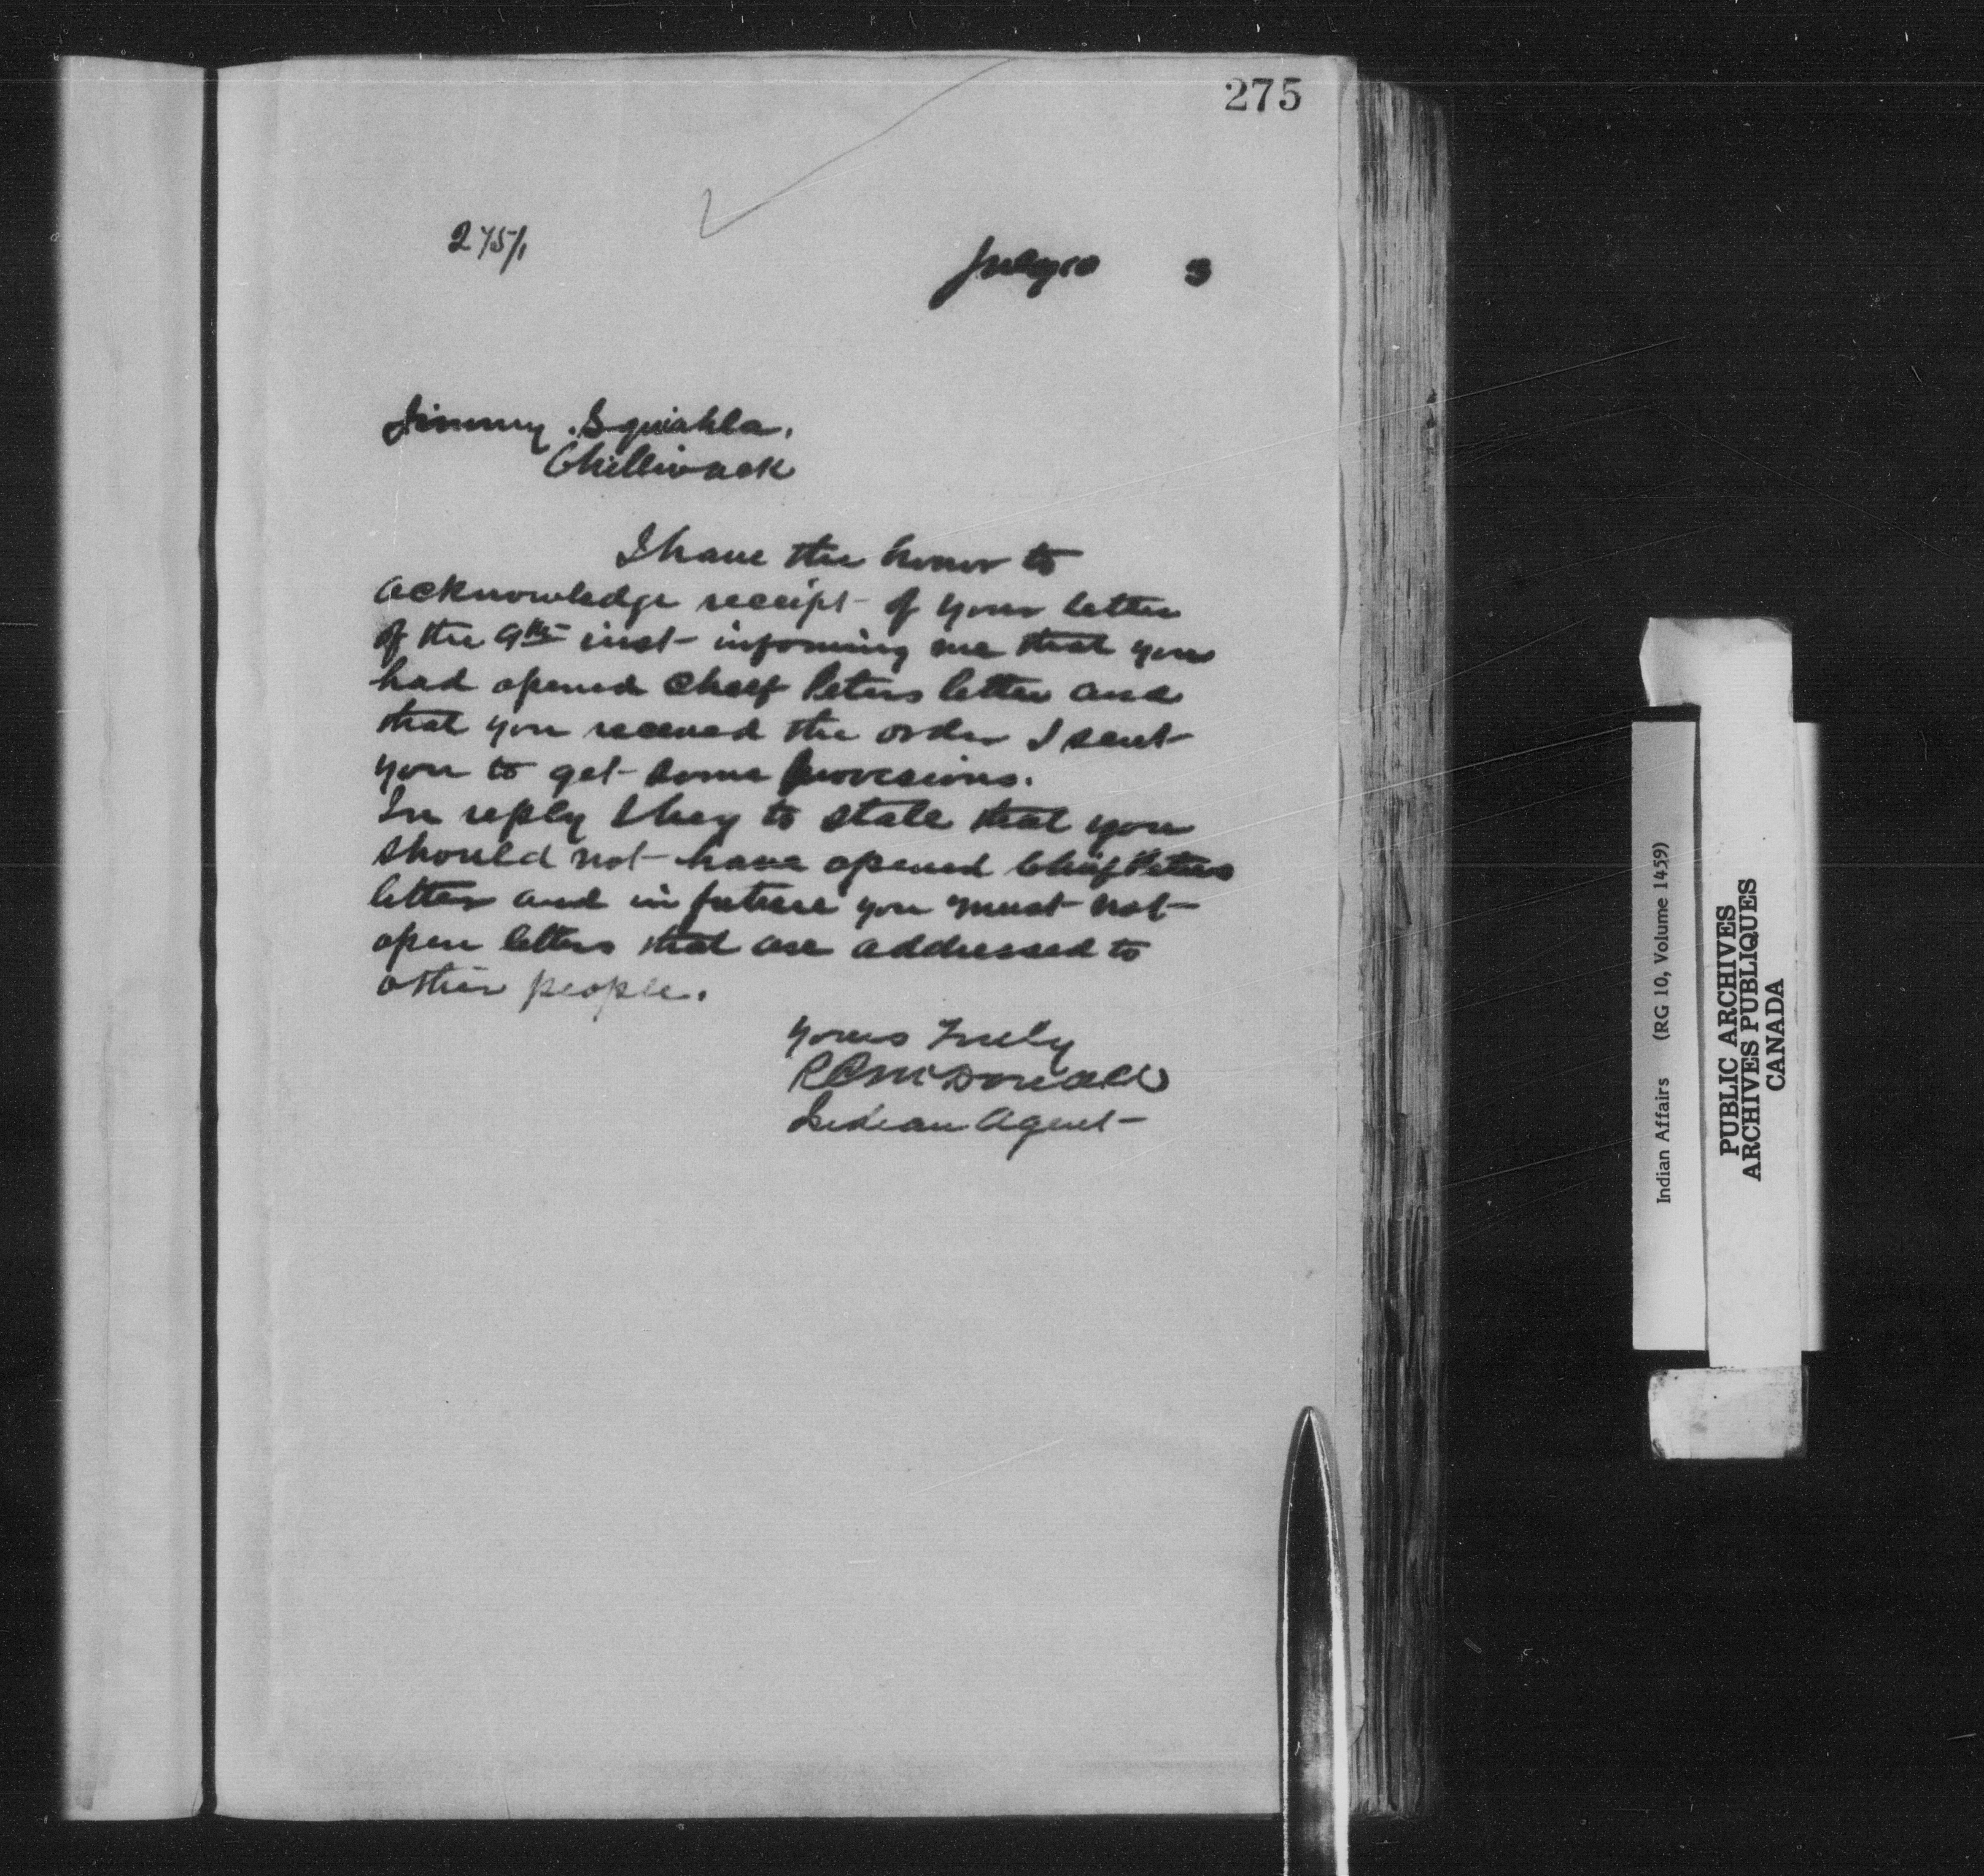 275
275/1
July 10 3
Jimmy Squiahla.
Chilliwack
I have the honor to
acknowledge receipt of your letter
of the 9th inst informing me that you
had opened Cheif Peters letter and
that you received the order I sent
you to get some provisions.
In reply I beg to state that you
should not have opened Chief Peters
letter and in future you must not
open letters that are addressed to
other people.
Yours Truly
R C McDonald
Indian Agent
Indian Affairs (RG 10, Volume 1459)
PUBLIC ARCHIVES
ARCHIVES PUBLIQUES
CANADA